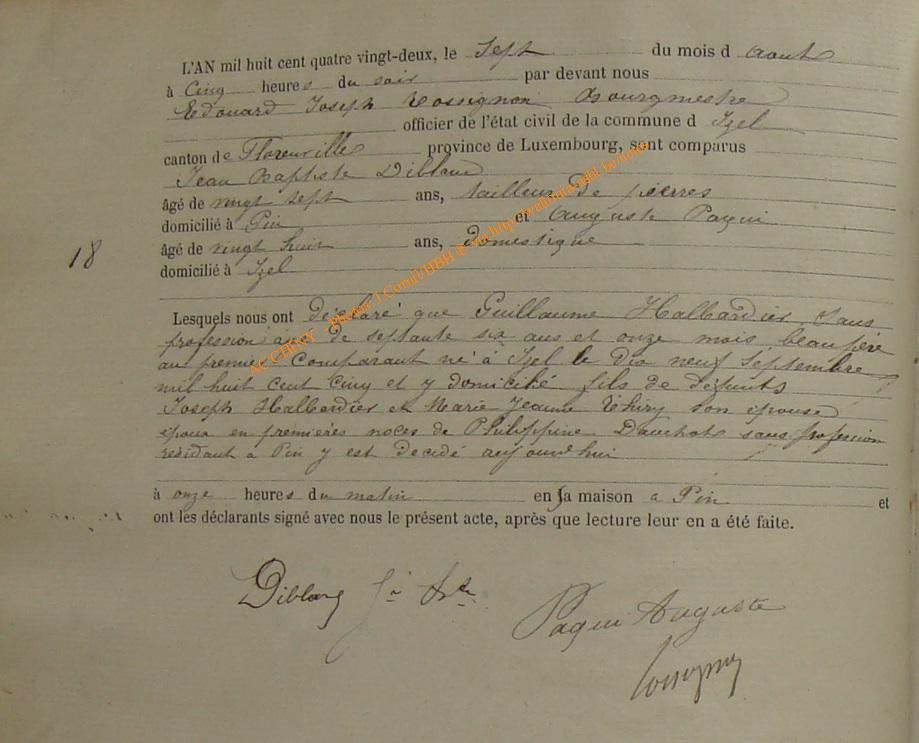 L'AN mil huit cent quatre vingt-deux, le Sept du mois d Août
à Cinq heures du soir par devant nous
Edouard Joseph Rossignon Bourgmestre
officier de l'état civil de la commune d Izel
canton de Florenville province de Luxembourg, sont comparus
Jean Baptiste Diblang
âgé de vingt sept ans, tailleur de pierres
domicilié à Pin et Auguste Paqui
âgé de vingt huit ans, domestique
18
domicilié à Izel
Lesquels nous ont déclaré que Guillaume Halbardier sans
profession âgé de septante six ans et onze mois beau père
au premier comparant né à Izel le dix neuf Septembre
mil huit cent cinq et y domicilié fils de défunts
Joseph Halbardier et Marie Jeanne Thiry son épouse
époux en premières noces de Philippine sans profession
residant à Pin y est decédé aujourd'hui
à onze heures du matin en sa maison a Pin et
ont les déclarants signé avec nous le présent acte, après que lecture leur en a été faite.
Diblang
Paqui Auguste
AC CHINY - Photos J Cornil/HBH